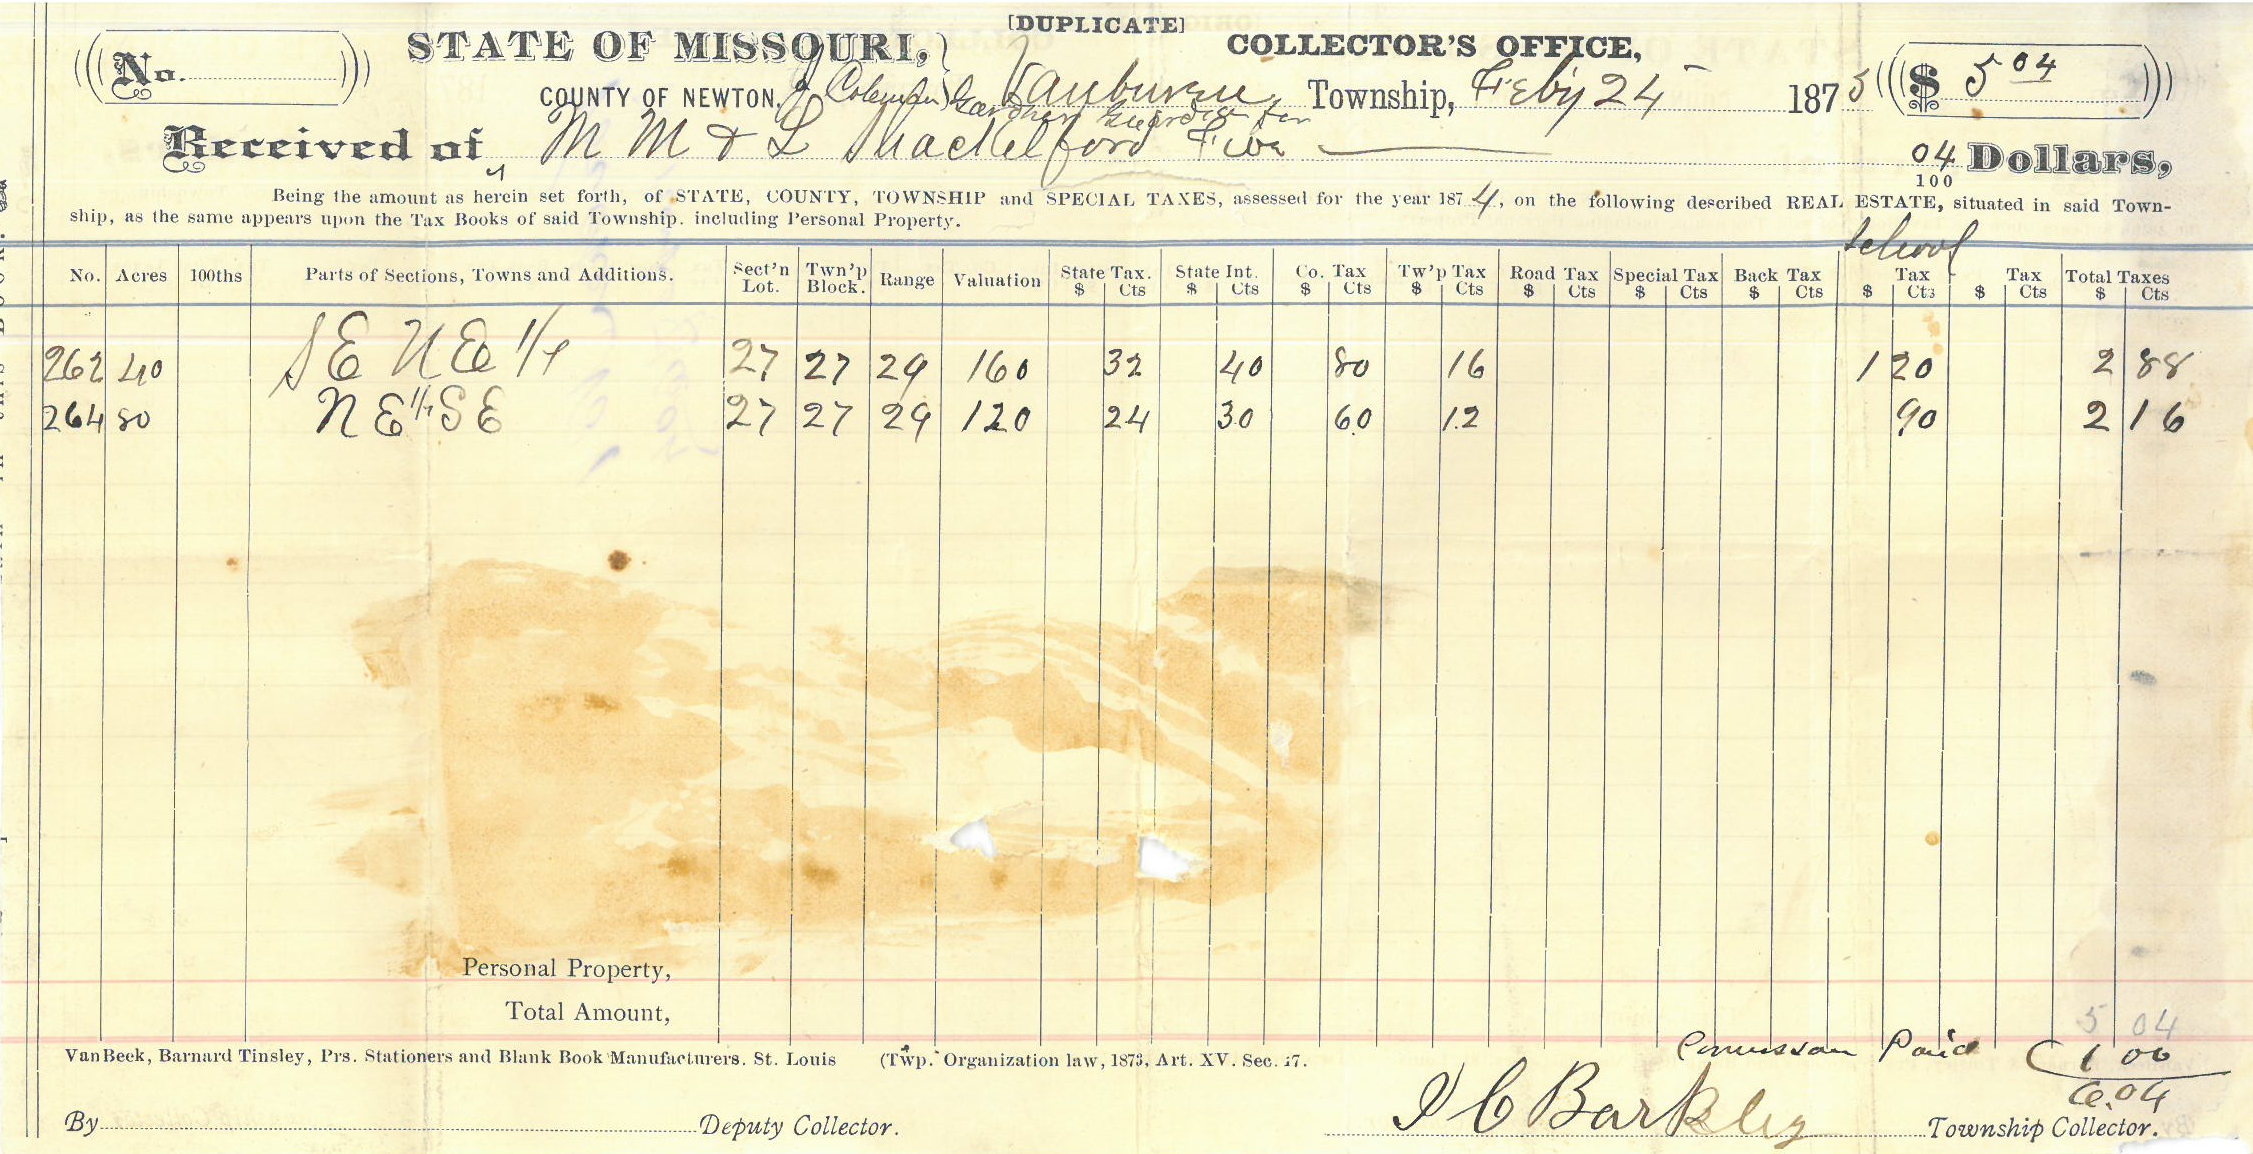 [DUPLICATE]
No. STATE OF MISSOURI, COLLECTOR'S OFFICE, $ 5 04
COUNTY OF NEWTON. Vanburen Township, Feby 24 1875
J Coleman Gardner Guardian for
Received of M M & L Shackelford Five 04/100 Dollars,
Being the amount as herein set forth, of STATE, COUNTY, TOWNSHIP and SPECIAL TAXES, assessed for the year 1874, on the following described REAL ESTATE, situated in said Town-
ship, as the same appears upon the Tax Books of said Township. including Personal Property.
School
No. Acres 100ths Parts of Sections, Towns and Additions. Sect'n Lot. Twn'p Block. Range Valuation State Tax. $ Cts State Int. $ Cts Co. Tax $ Cts Tw'p Tax $ Cts Road Tax $ Cts Special Tax $ Cts Back Tax $ Cts Tax $ Cts Tax $ Cts Total Taxes $ Cts
262 40 SE NE 1/4 27 27 29 160 32 40 80 16 1 20 2 88
264 80 NE 1/4 SE 27 27 29 120 24 30 60 12 90 2 16
Personal Property,
Total Amount, 5 04
VanBeek, Barnard Tinsley, Prs. Stationers and Blank Book Manufacturers. St. Louis (Twp. Organization law, 1873, Art. XV. Sec. 17. Comission Paid 1 00
6.04
By Deputy Collector. I C Barkley Township Collector.